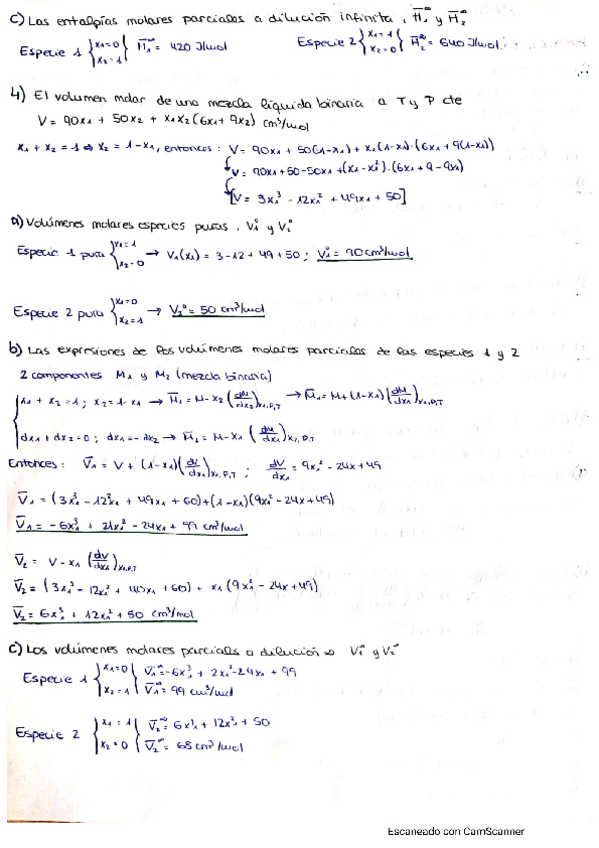 c) Las entalpías molares parciales a dilución infinita, H̅₁^∞ y H̅₂^∞
Especie 1 {x₁=0 x₂=1} H̅₁^∞ = 420 J/mol Especie 2 {x₁=1 x₂=0} H̅₂^∞ = 640 J/mol
4) El volumen molar de una mezcla líquida binaria a T y P cte
V = 90x₁ + 50x₂ + x₁x₂(6x₁ + 9x₂) cm³/mol
x₁ + x₂ = 1 ⇒ x₂ = 1-x₁, entonces: V = 90x₁ + 50(1-x₁) + x₁(1-x₁)·(6x₁ + 9(1-x₁))
V = 90x₁ + 50 - 50x₁ + (x₁-x₁²)·(6x₁ + 9 - 9x₁)
[V = 3x₁³ - 12x₁² + 49x₁ + 50]
a) Volúmenes molares especies puras, V₁° y V₂°
Especie 1 pura {x₁=1 x₂=0} → V₁(x₁) = 3-12+49+50; V₁° = 90 cm³/mol
Especie 2 pura {x₁=0 x₂=1} → V₂° = 50 cm³/mol
b) Las expresiones de los volúmenes molares parciales de las especies 1 y 2
2 componentes M₁ y M₂ (mezcla binaria)
x₁ + x₂ = 1; x₂ = 1-x₁ → M̅₁ = M - x₂ (dM/dx₂)x₁,P,T → M̅₁ = M + (1-x₁)(dM/dx₁)x₁,P,T
dx₁ + dx₂ = 0; dx₁ = -dx₂ → M̅₂ = M - x₁ (dM/dx₁)x₁,P,T
Entonces: V̅₁ = V + (1-x₁)(dV/dx₁)x₁,P,T; dV/dx₁ = 9x₁² - 24x + 49
V̅₁ = (3x₁³ - 12x₁² + 49x₁ + 60) + (1-x₁)(9x₁² - 24x + 49)
V̅₁ = -6x₁³ + 21x₁² - 24x₁ + 99 cm³/mol
V̅₂ = V - x₁ (dV/dx₁)x₁,P,T
V̅₂ = (3x₁³ - 12x₁² + 40x₁ + 60) + x₁(9x₁² - 24x + 49)
V̅₂ = 6x₁³ + 12x₁² + 50 cm³/mol
c) Los volúmenes molares parciales a dilución ∞ V₁^∞ y V₂^∞
Especie 1 {x₁=0 x₂=1} { V̅₁^∞ = -6x₁³ + 2x₁² - 24x₁ + 99
V̅₁^∞ = 99 cm³/mol
Especie 2 {x₁=1 x₂=0} { V̅₂^∞ = 6x₁³ + 12x₁² + 50
V̅₂^∞ = 68 cm³/mol
Escaneado con CamScanner